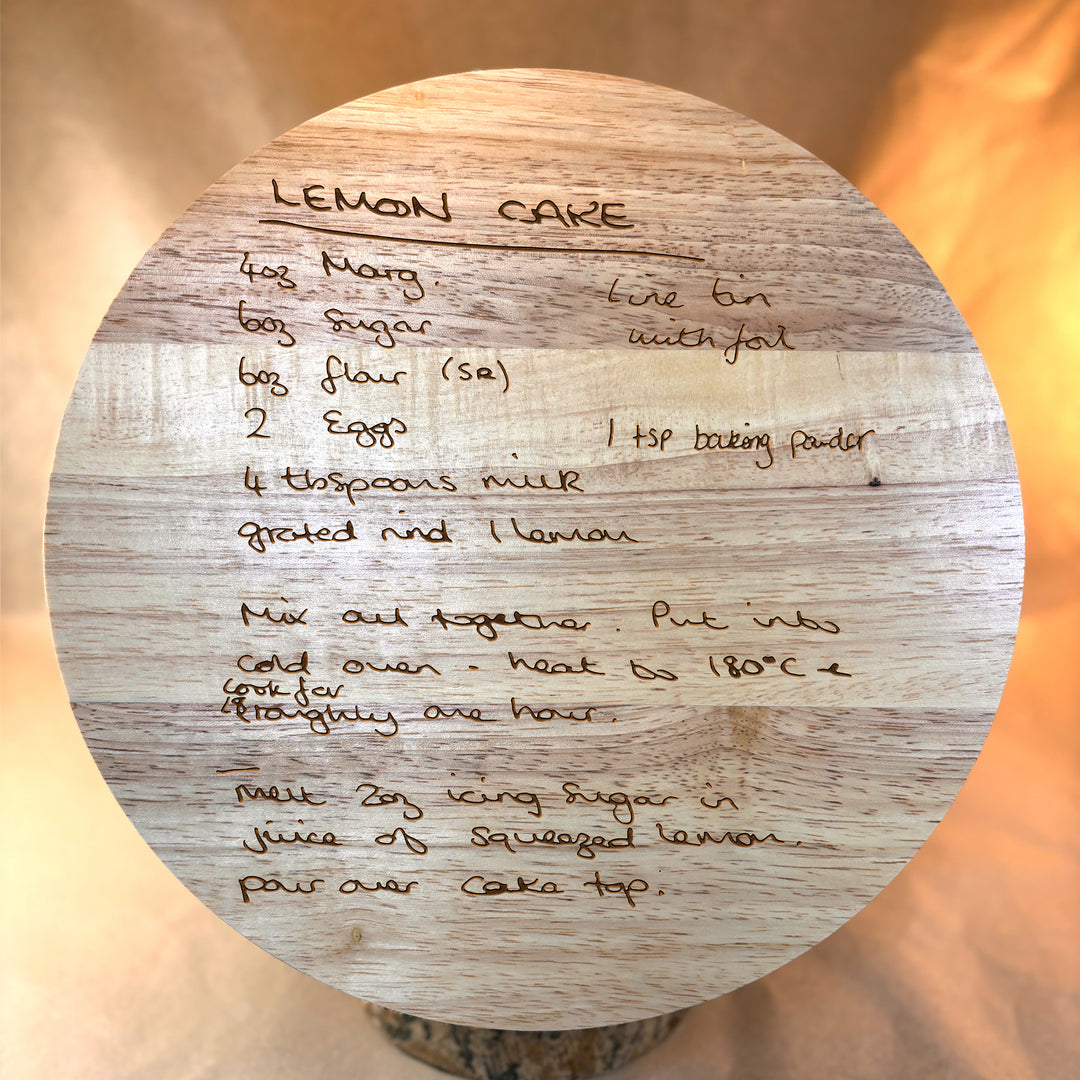 LEMON CAKE
4oz Marg.
Line tin
6oz Sugar
with foil
6oz flour (SR)
2 Eggs
1 tsp baking powder
4 tbspoons milk
grated rind 1 lemon
Mix all together. Put into
cold oven - heat to 180°C &
cook for
roughly one hour.
Melt 2oz icing Sugar in
juice of squeezed lemon.
pour over cake top.